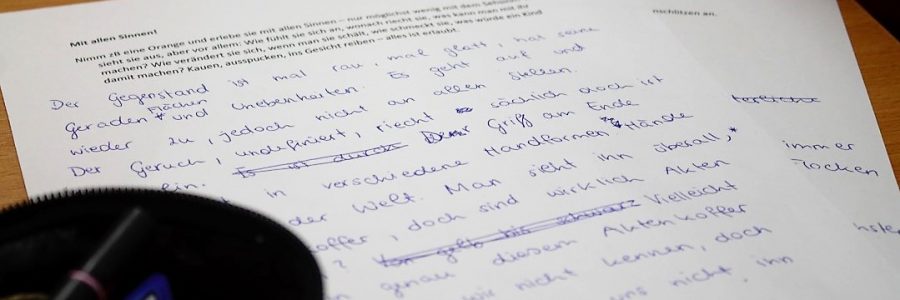 Mit allen Sinnen!
Nimm zB eine Orange und erlebe sie mit allen Sinnen – nur möglichst wenig mit dem Sehsinn
sieht sie aus, aber vor allem: Wie fühlt sie sich an, wonach riecht sie, was kann man mit ihr
machen? Wie verändert sie sich, wenn man sie schält, wie schmeckt sie, was würde ein Kind
damit machen? Kauen, ausspucken, ins Gesicht reiben – alles ist erlaubt.
nschlitzen an.
Der Gegenstand ist mal rau, mal glatt, hat seine
Flächen
geraden * und Unebenheiten. Es geht auf und
wieder zu, jedoch nicht an allen Stellen.
Der Geruch, undefiniert, riecht sächlich doch ist
ein. Es ist durch Der Griff am Ende
t in verschiedene Handformen * Hände
der Welt. Man sieht ihn überall, *
offer, doch sind wirklich Akten
? Von gelb bis schwarz Vielleicht
n genau diesem Aktenkoffer
wir nicht kennen, doch
uns nicht, ihn
immer